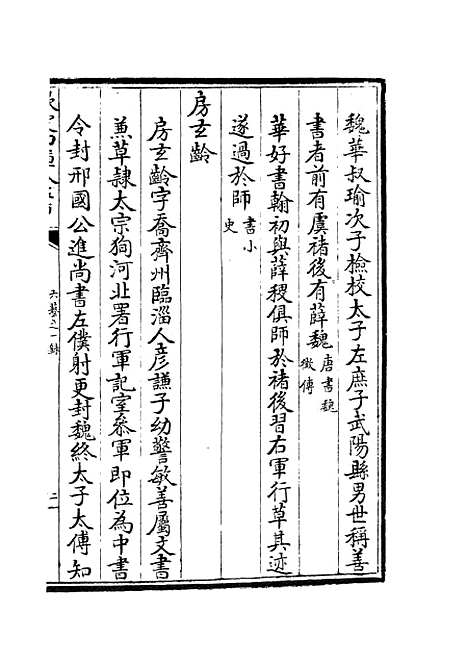 魏華叔瑜次子檢校太子左庶子武陽縣男世稱善
書者前有虞褚後有薛魏唐書魏徵傳
華好書翰初與薛稷俱師於褚後習右軍行草其迹
遂過於師書小史
房玄齡
房玄齡字喬齊州臨淄人彥謙子幼警敏善屬文書
兼草隸太宗狥河北署行軍記室叅軍即位為中書
令封邢國公進尚書左僕射更封魏終太子太傅知
六藝之一錄